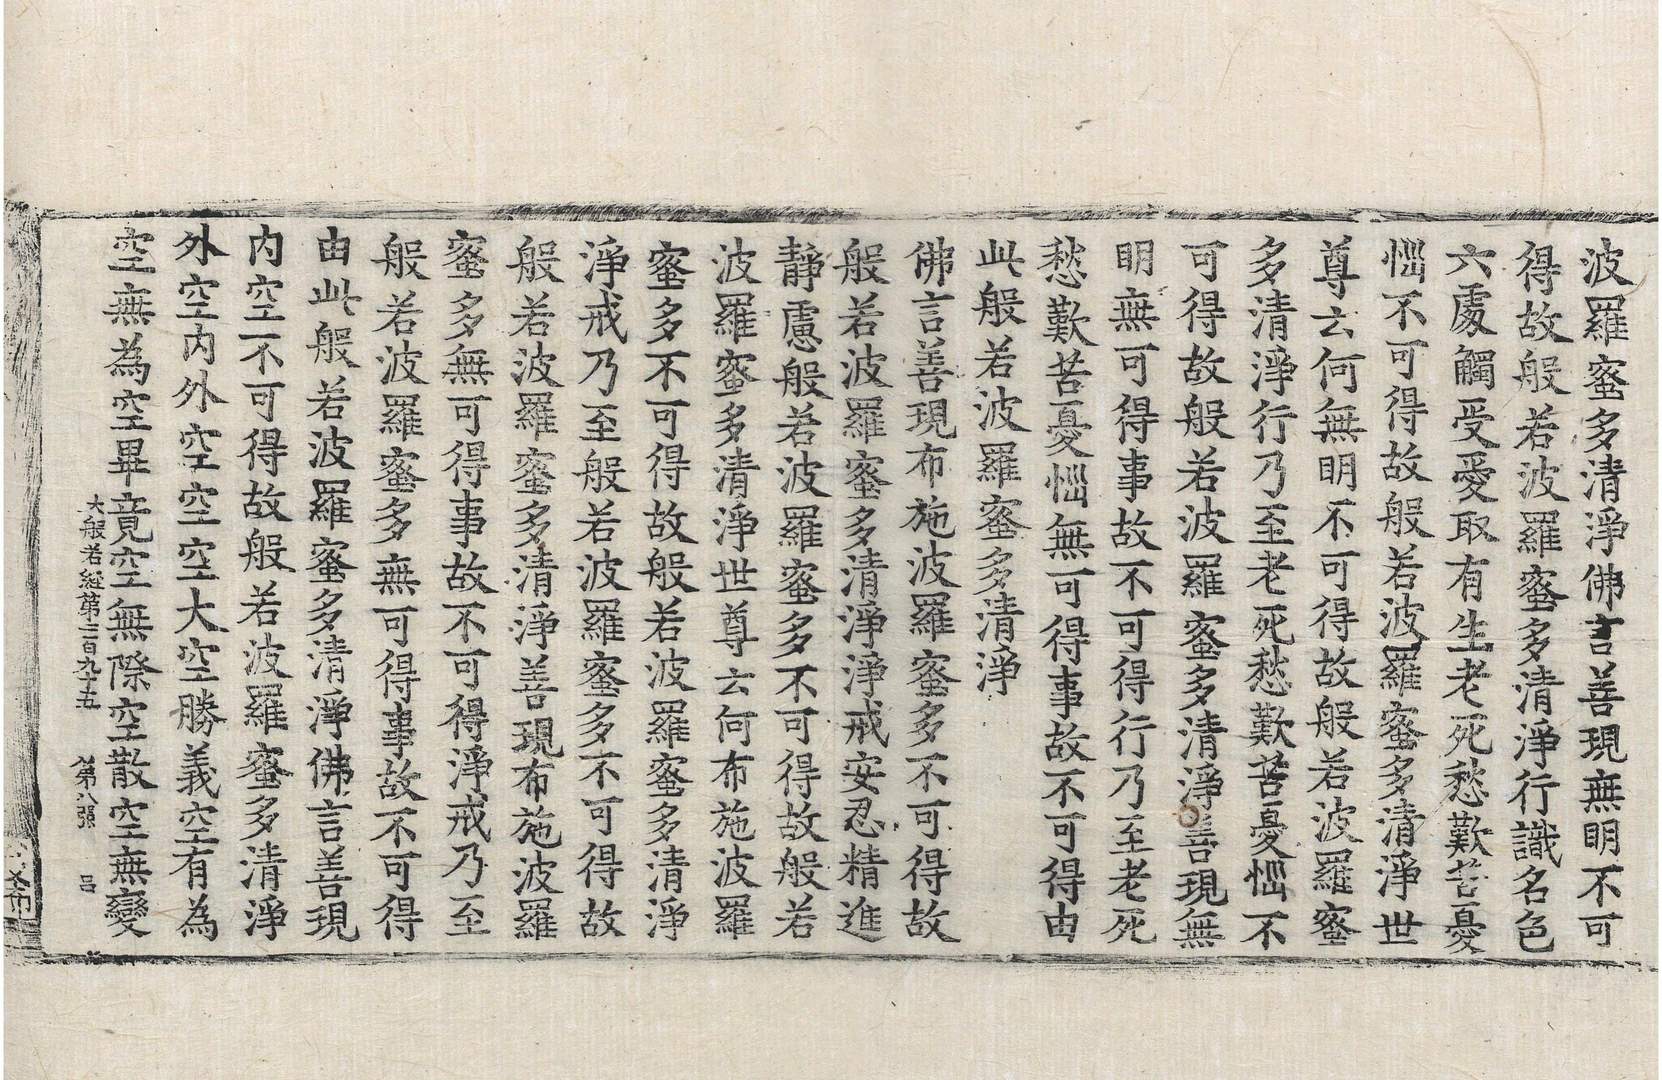 波羅蜜多清淨佛言善現無明不可
得故般若波羅蜜多清淨行識名色
六處觸受愛取有生老死愁歎苦憂
惱不可得故般若波羅蜜多清淨世
尊云何無明不可得故般若波羅蜜
多清淨行乃至老死愁歎苦憂惱不
可得故般若波羅蜜多清淨善現無
明無可得事故不可得行乃至老死
愁歎苦憂惱無可得事故不可得由
此般若波羅蜜多清淨
佛言善現布施波羅蜜多不可得故
般若波羅蜜多清淨淨戒安忍精進
靜慮般若波羅蜜多不可得故般若
波羅蜜多清淨世尊云何布施波羅
蜜多不可得故般若波羅蜜多清淨
淨戒乃至般若波羅蜜多不可得故
般若波羅蜜多清淨善現布施波羅
蜜多無可得事故不可得淨戒乃至
般若波羅蜜多無可得事故不可得
由此般若波羅蜜多清淨佛言善現
內空不可得故般若波羅蜜多清淨
外空內外空空空大空勝義空有為
空無為空畢竟空無際空散空無變
大般若經第二百九十五 第八張 呂